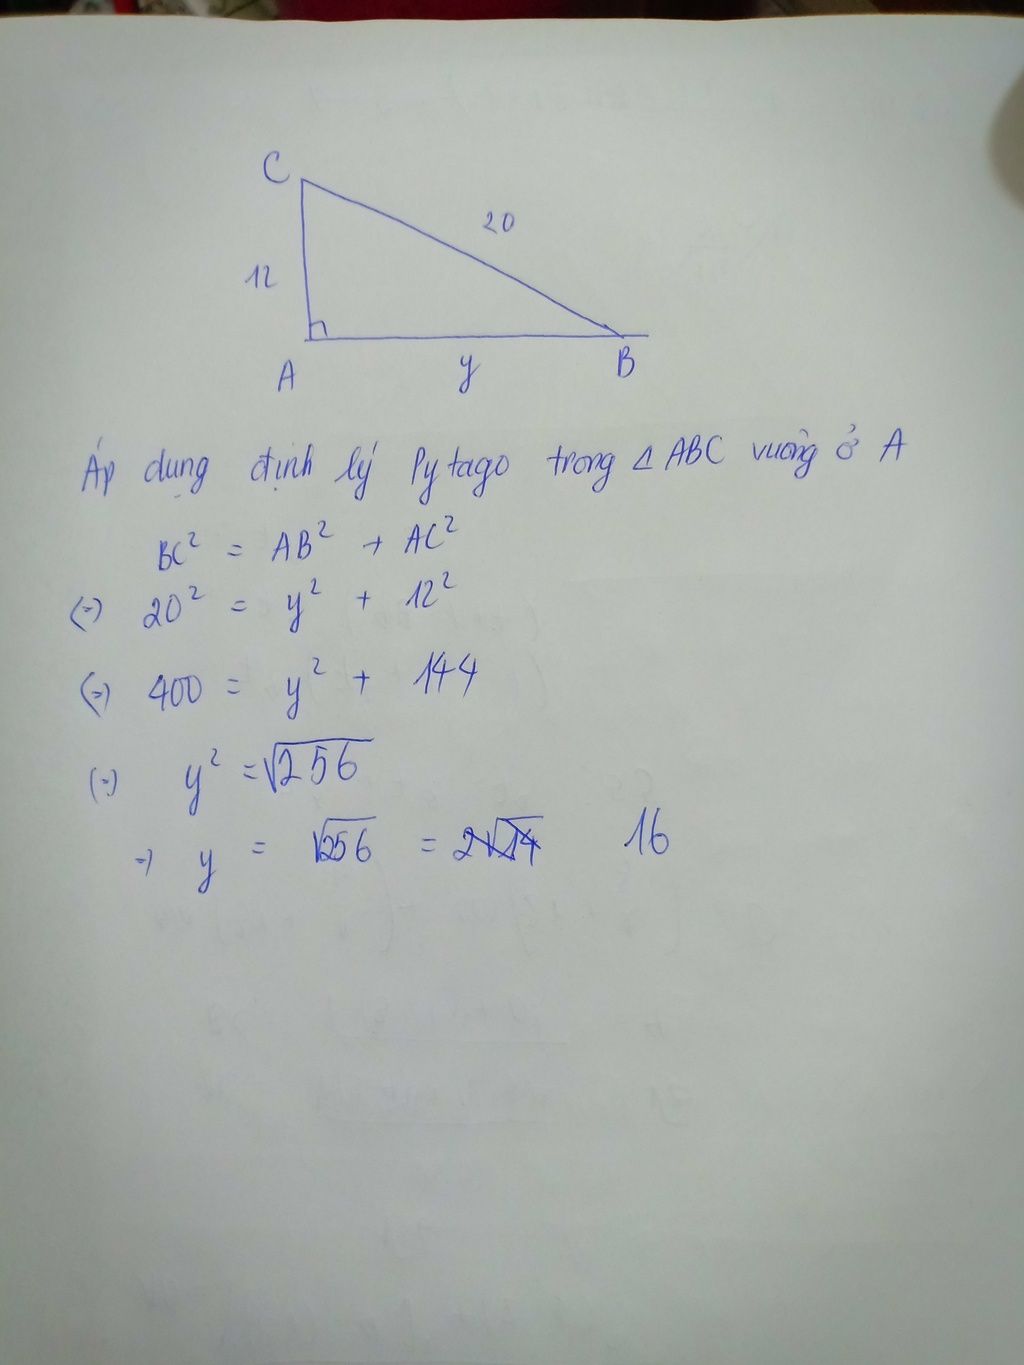 C
20
12
A
y
B
Áp dụng định lý Pytago trong Δ ABC vuông ở A
BC² = AB² + AC²
(=) 20² = y² + 12²
(=) 400 = y² + 144
(=) y² = √256
=) y = √256 = 2√14 16